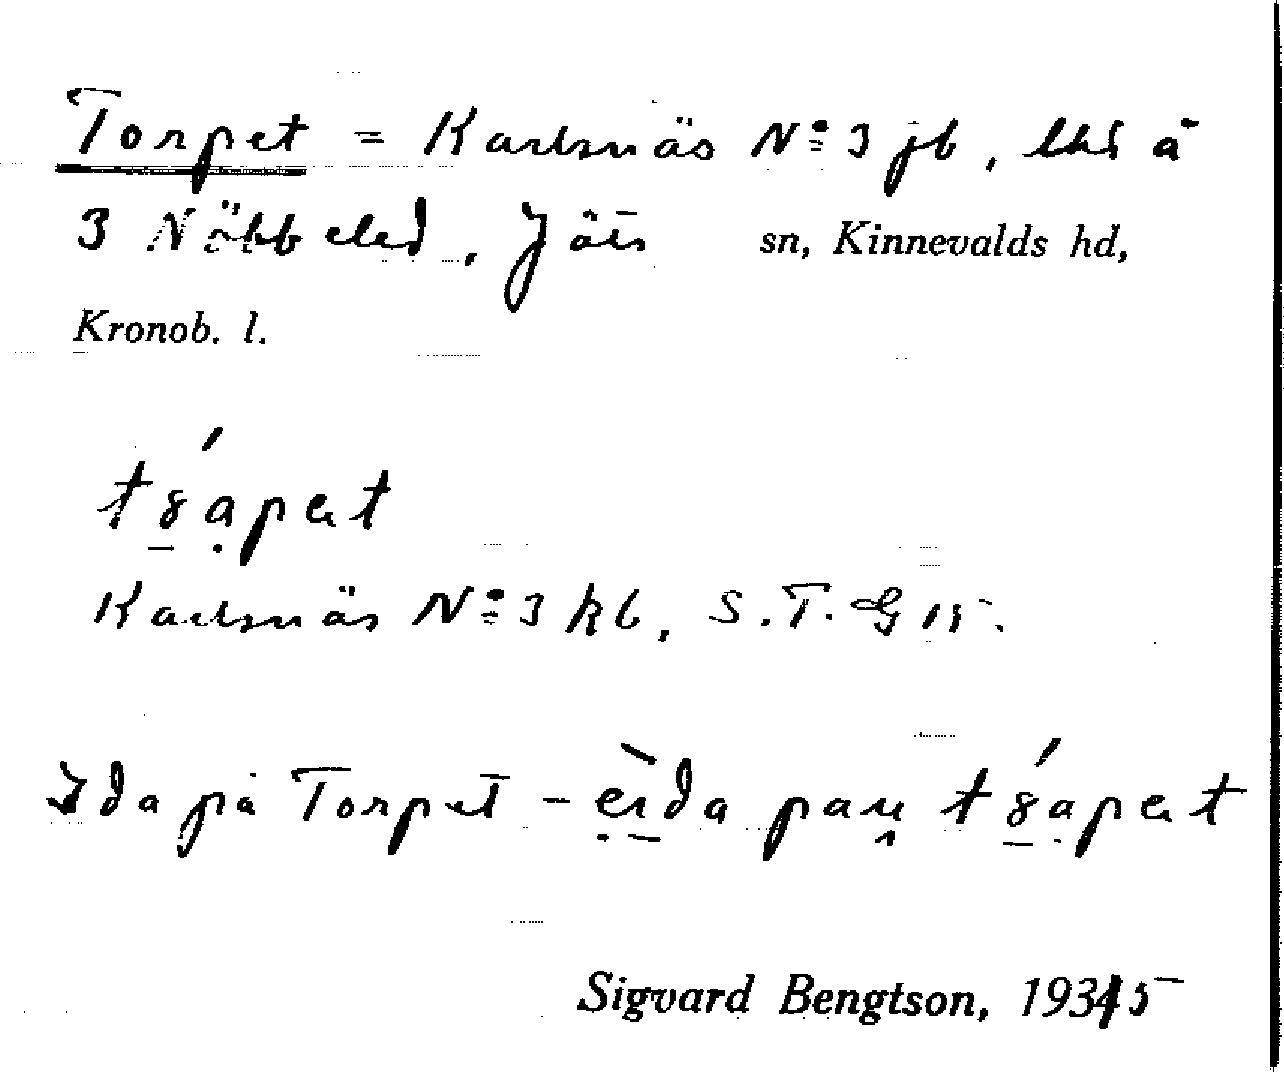 Torpet = Karlsnäs Nº 3 jb, lhd å
3 Nöbbeled, Jäts sn, Kinnevalds hd,
Kronob. l.
Karlsnäs Nº 3 kb, S.T.G 15.
Ida på Torpet -
Sigvard Bengtson, 1935